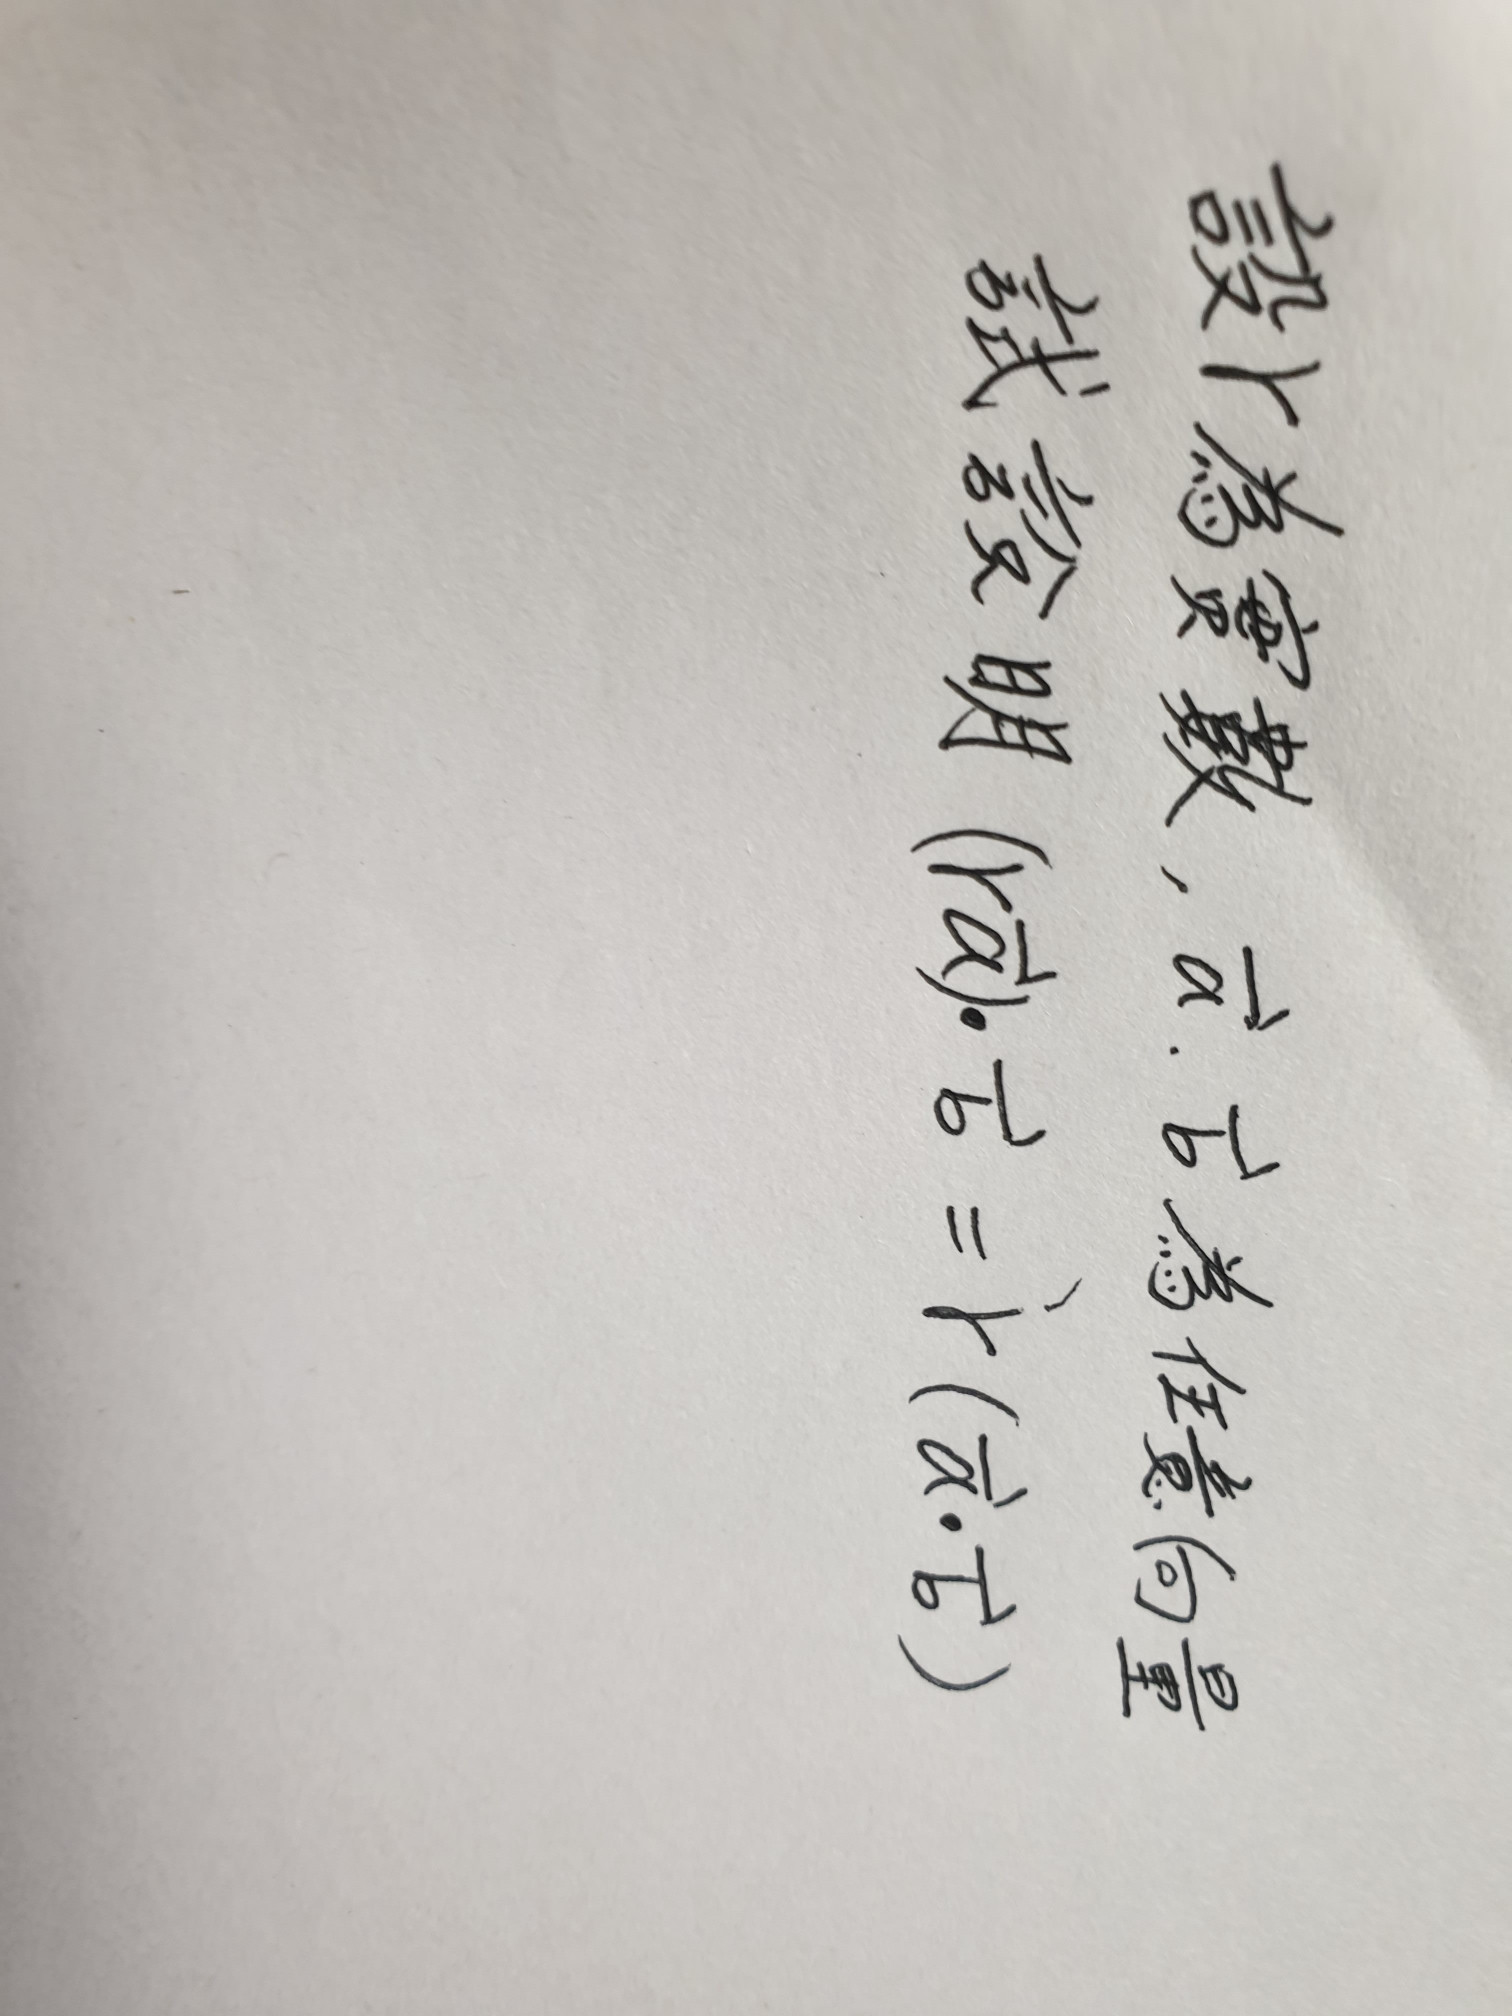 設r為實數,a⃗.b⃗為任意向量
試證明(ra⃗)·b⃗=r(a⃗·b⃗)